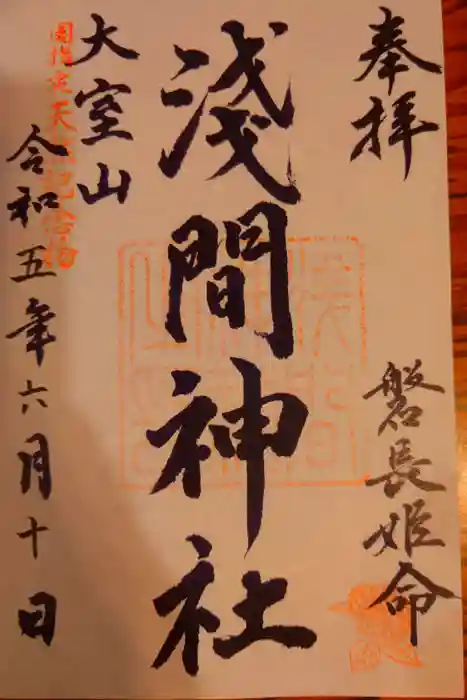 奉拝
磐長姫命
淺間神社
大室山
国指定天然記念物
令和五年六月十日